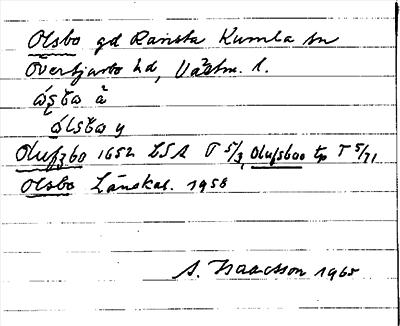 Olsbo gd Ransta Kumla sn
Övertjurbo hd, Västm. l.
Olufzbo 1652 LSA T 5/3, Olufsboo tp T 5/71
Olsbo Länskal. 1958
S. Isaacsson 1965